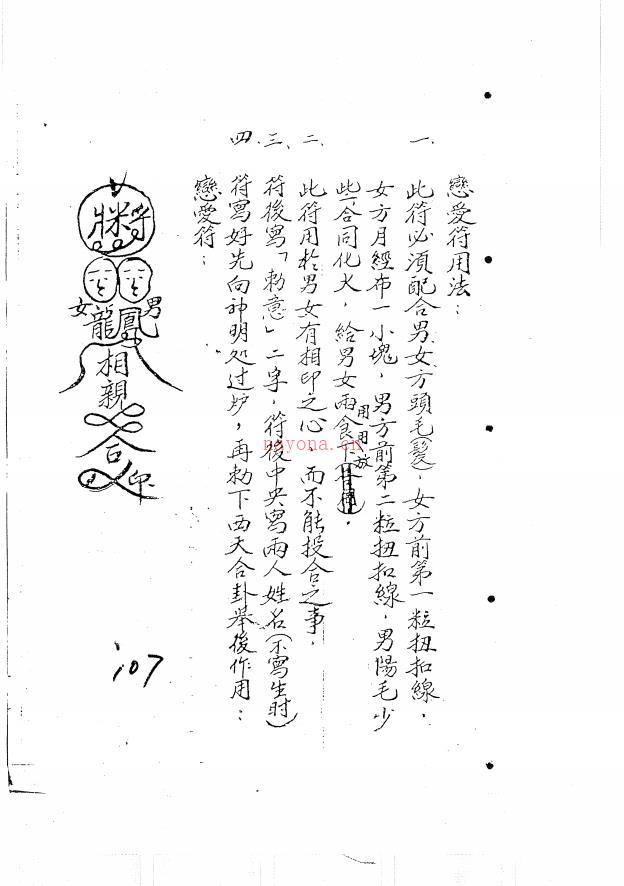 戀愛符用法：
一、此符必須配合男女方頭毛（髮），女方前第一粒扭扣線，
女方月經布一小塊，男方前第二粒扭扣線，男陽毛少
些合同化火，給男女兩食
用用放
二、此符用於男女有相印之心，而不能投合之事，
三、符後寫「勅意」二字，符後中央寫兩人姓名（不寫生时）
四、符寫好先向神明处过炉，再勅下西天合卦举後作用：
戀愛符：
女 男
龍鳳
相親
合
印
107
nayona.cn